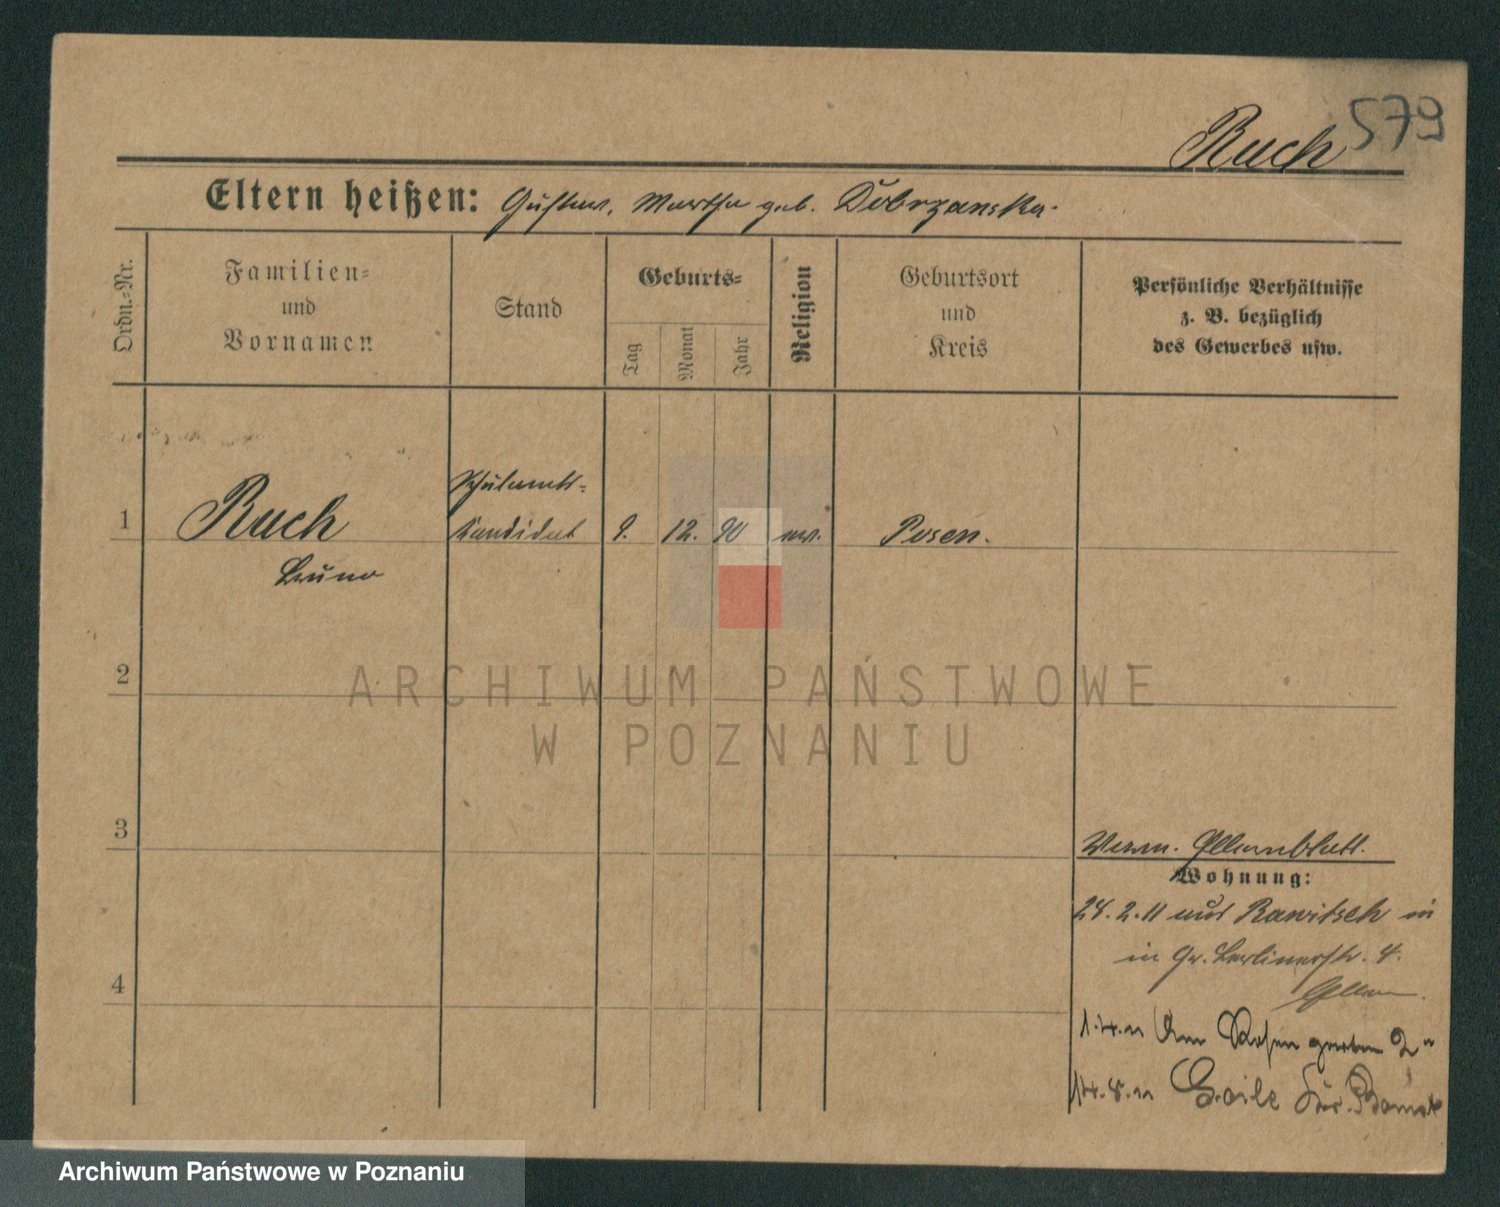 Ruch 579
Eltern heißen: Gustav, Martha geb. Dobrzanska.
Ordn.-Nr.
Familien-
und
Vornamen
Stand
Geburts-
Tag
Monat
Jahr
Religion
Geburtsort
und
Kreis
Persönliche Verhältnisse
z. B. bezüglich
des Gewerbes usw.
1
Ruch
Bruno
Schulamts-
kandidat
9. 12. 90
ev.
Posen.
2
ARCHIWUM PAŃSTWOWE
W POZNANIU
3
4
Verm. Elternblatt.
Wohnung:
24. 2. 11 aus Rawitsch in
in Gr. Berlinerstr. 4.
Eltern.
1.4.11 Am Rosengarten 2
14.8.11 Kr.
Archiwum Państwowe w Poznaniu